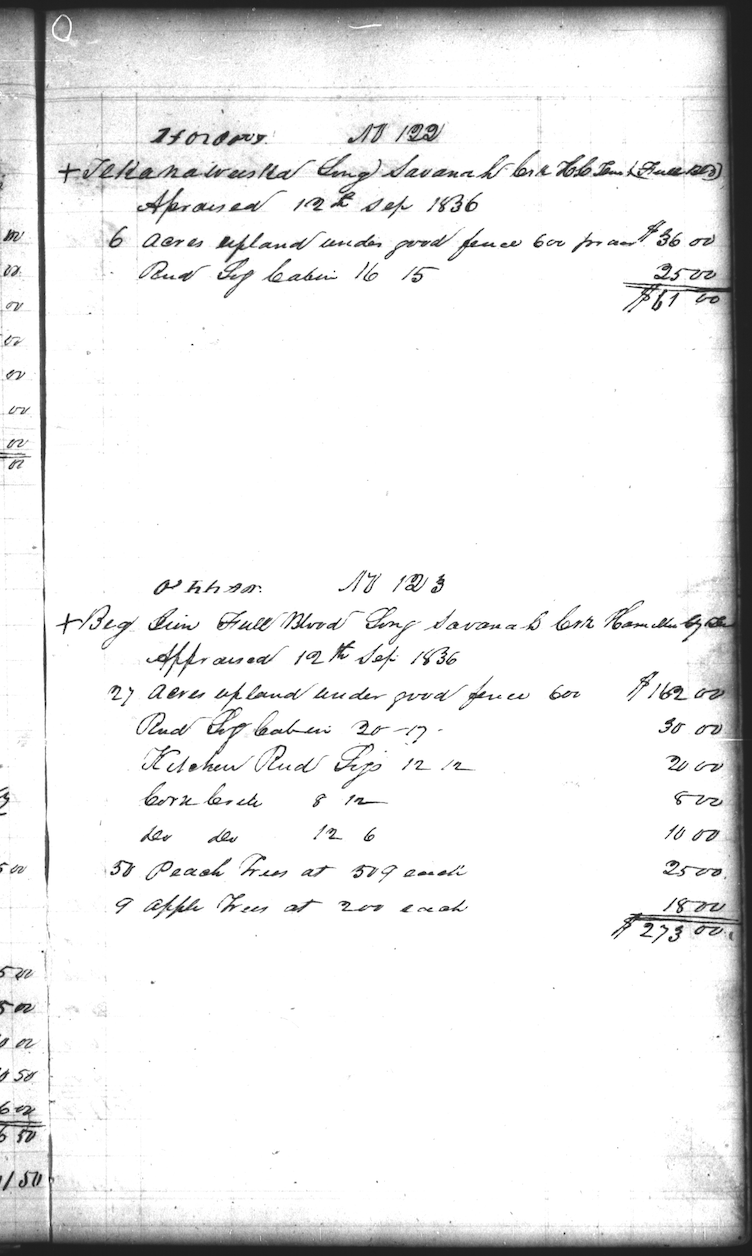 No 122
+ Tekanaweeska Long Savanah Crk H C Ten (Full Bld)
Apraised 12th Sep 1836
6 Acres upland under good fence 600 pr acr $36 00
Rud Log Cabin 16 15 25 00
$61 00
No 123
+ Big Jim Full Blood Long Savanah Crk Hamilton Cty Ten
Appraised 12th Sep 1836
27 Acres upland under good fence 600 $162 00
Rud Log Cabin 20 - 17 - 30 00
Kitchen Rud Logs 12 12 20 00
Corn Crib 8 12 8 00
do do 12 6 10 00
50 Peach Trees at 50¢ each 25 00
9 apple Trees at 200 each 18 00
$273 00